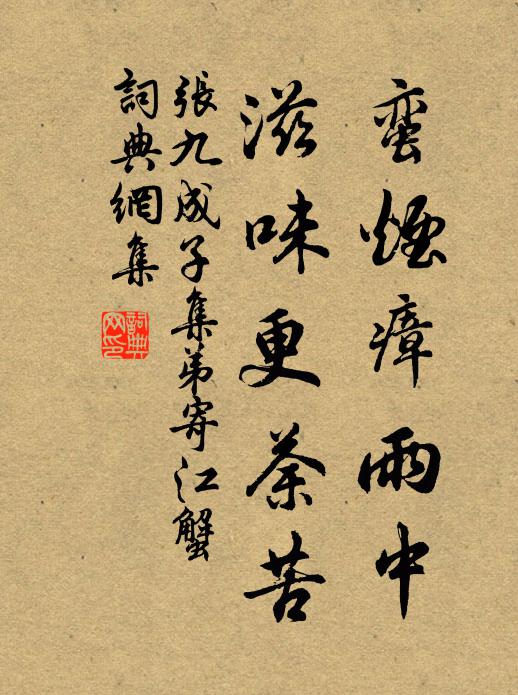 蛮煙瘴雨中
滋味更荼苦
張九成子集弟寄江蟹
詞典網集
詞典網印